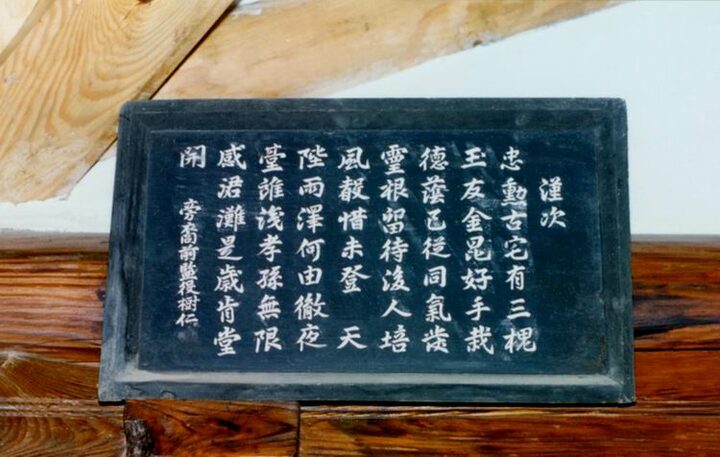 謹次
忠勳古宅有三槐
玉友金昆好手栽
德蔭已從同氣
靈根留待後人培
風聲惜未登 天
陛雨澤何由徹夜
臺誰孝孫無限
感涒灘是歲肯堂
開
旁裔前監役樹仁